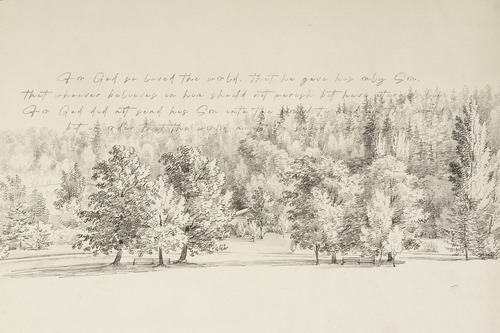 For God so loved the world, that he gave his only Son,
that whoever believes in him should not perish but have eternal life.
For God did not send his Son into the world to
but in order that the world